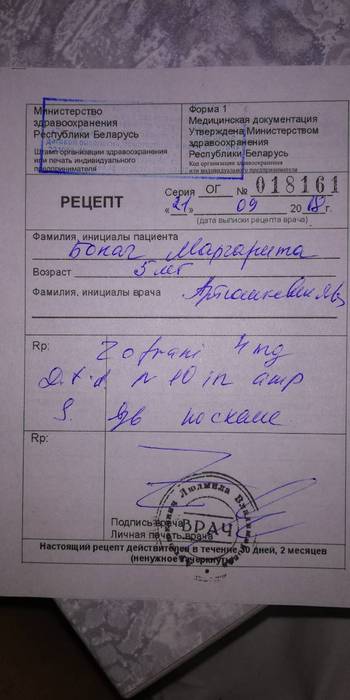 Министерство
здравоохранения
Республики Беларусь
Штамп организации здравоохранения
или печать индивидуального
предпринимателя
Форма 1
Медицинская документация
Утверждена Министерством
здравоохранения
Республики Беларусь
Код организации здравоохранения
или индивидуального предпринимателя
РЕЦЕПТ
Серия ОГ № 018161
«21» 09 2018 г.
(дата выписки рецепта врача)
Фамилия, инициалы пациента
Маргарита
Возраст 5 лет
Фамилия, инициалы врача
Rp: Zofrani 4 mg
D.t.d. N 10 in amp
S.
Rp:
Подпись врача
Личная печать врача
ВРАЧ
Людмила
Настоящий рецепт действителен в течение 30 дней, 2 месяцев
(ненужное зачеркнуть)